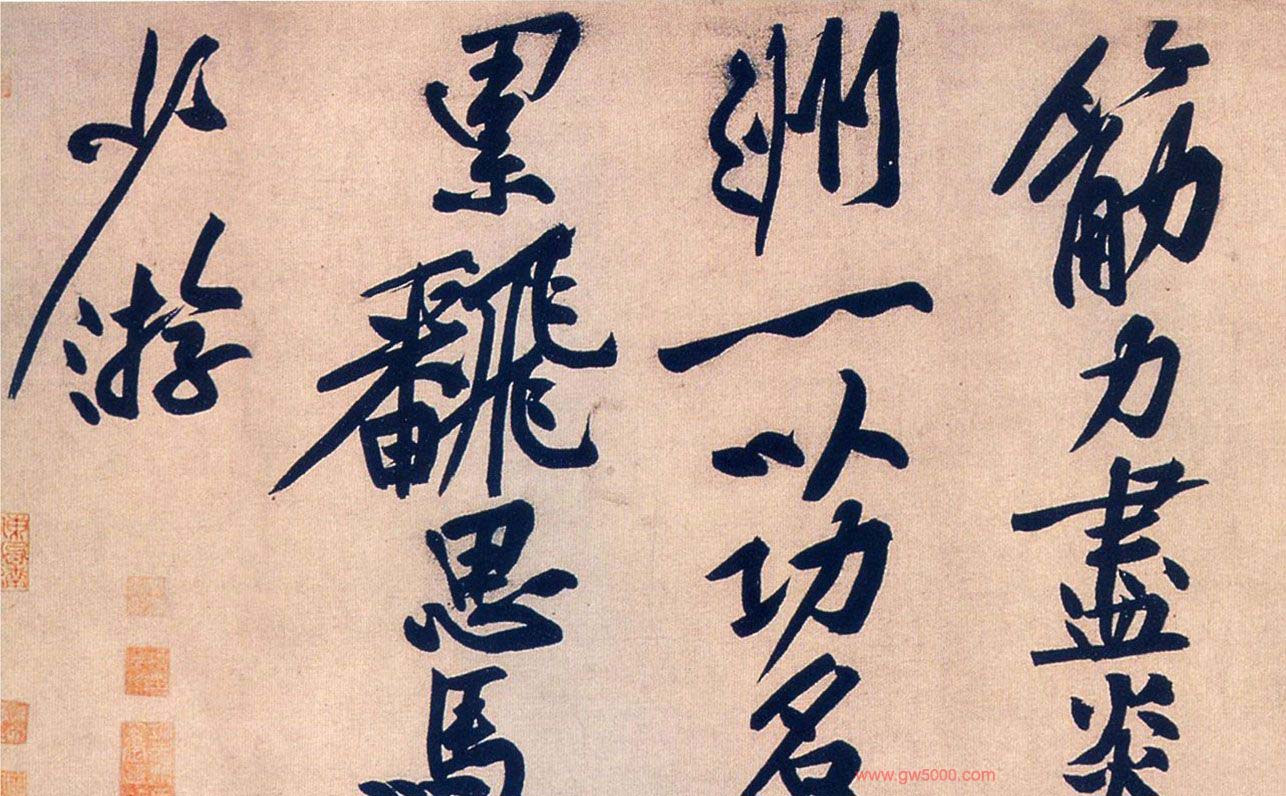 筋力盡炎
洲一以功名
累翻思馬
少游
www.gw5000.com